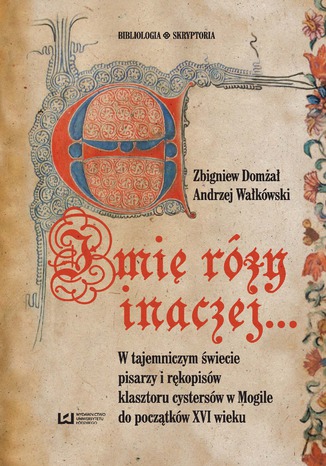 BIBLIOLOGIA SKRYPTORIA
Zbigniew Domżał
Andrzej Wałkówski
Imię róży
inaczej...
W tajemniczym świecie
pisarzy i rękopisów
klasztoru cystersów w Mogile
do początków XVI wieku
WYDAWNICTWO
UNIWERSYTETU
ŁÓDZKIEGO